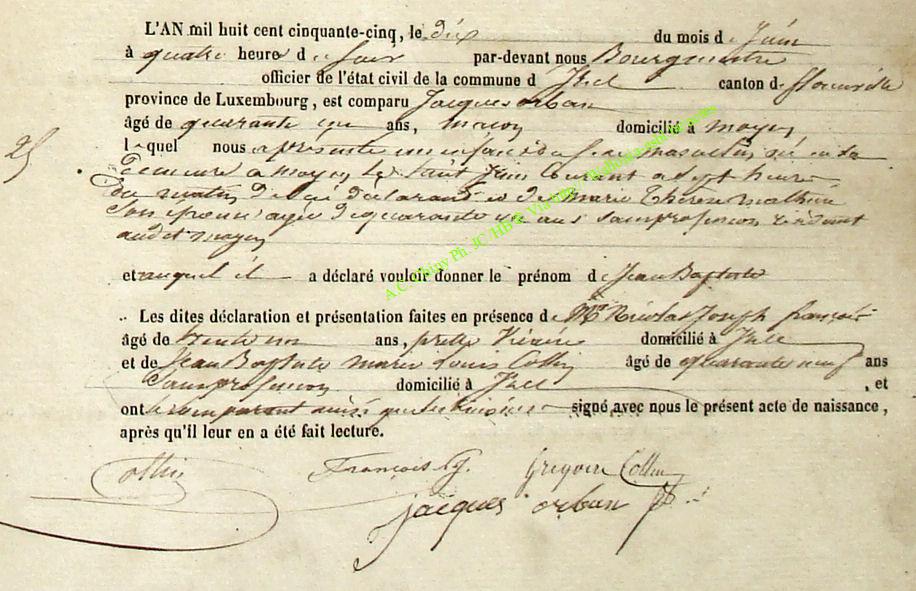 L'AN mil huit cent cinquante-cinq, le dix du mois de Juin
à quatre heure de Soir par-devant nous Bourgmestre
officier de l'état civil de la commune d'Izel canton de florenville
province de Luxembourg, est comparu Jacques orban
âgé de quarante un ans, macon domicilié à moyen
lequel nous a présenté un enfant du Sexe masculin, né en sa
demeure a moyen le huit Juin Courant a sept heure
du matin de lui déclarant et de Marie Thérèse Mathieu
Son épouse agée de quarante un ans sans profession résidant
audit moyen
25
et auquel il a déclaré vouloir donner le prénom de Jean Baptiste
Les dites déclaration et présentation faites en présence de Mr Nicolas Joseph françois
âgé de trente ans, prêtre Vicaire domicilié à Izel
et de Jean Baptiste marie Louis Collin âgé de quarante neuf ans
Sans profession domicilié à Izel , et
ont le comparant ainsi que les témoins signé avec nous le présent acte de naissance,
après qu'il leur en a été fait lecture.
Collin François Grégoire Collin
jacques orban